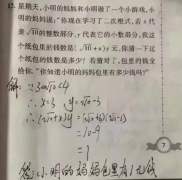 星期天,小明的妈妈和小明做了一个小游戏,小
明的妈妈说:"你现在学习了二次根式,若x代
表√10的整数部分,y代表它的小数部分,我这
个纸包里的钱数是(√10+x)y元,你猜一下这
个纸包里的钱数是多少?若猜对了,包里的钱全
给你."你知道小明的妈妈包里有多少钱吗?
解:∵3<√10<4
∴x=3 y=√10-3
∴(√10+x)y=(√10+3)(√10-3)
=10-9
=1
答:小明的妈妈包里有1元钱
7